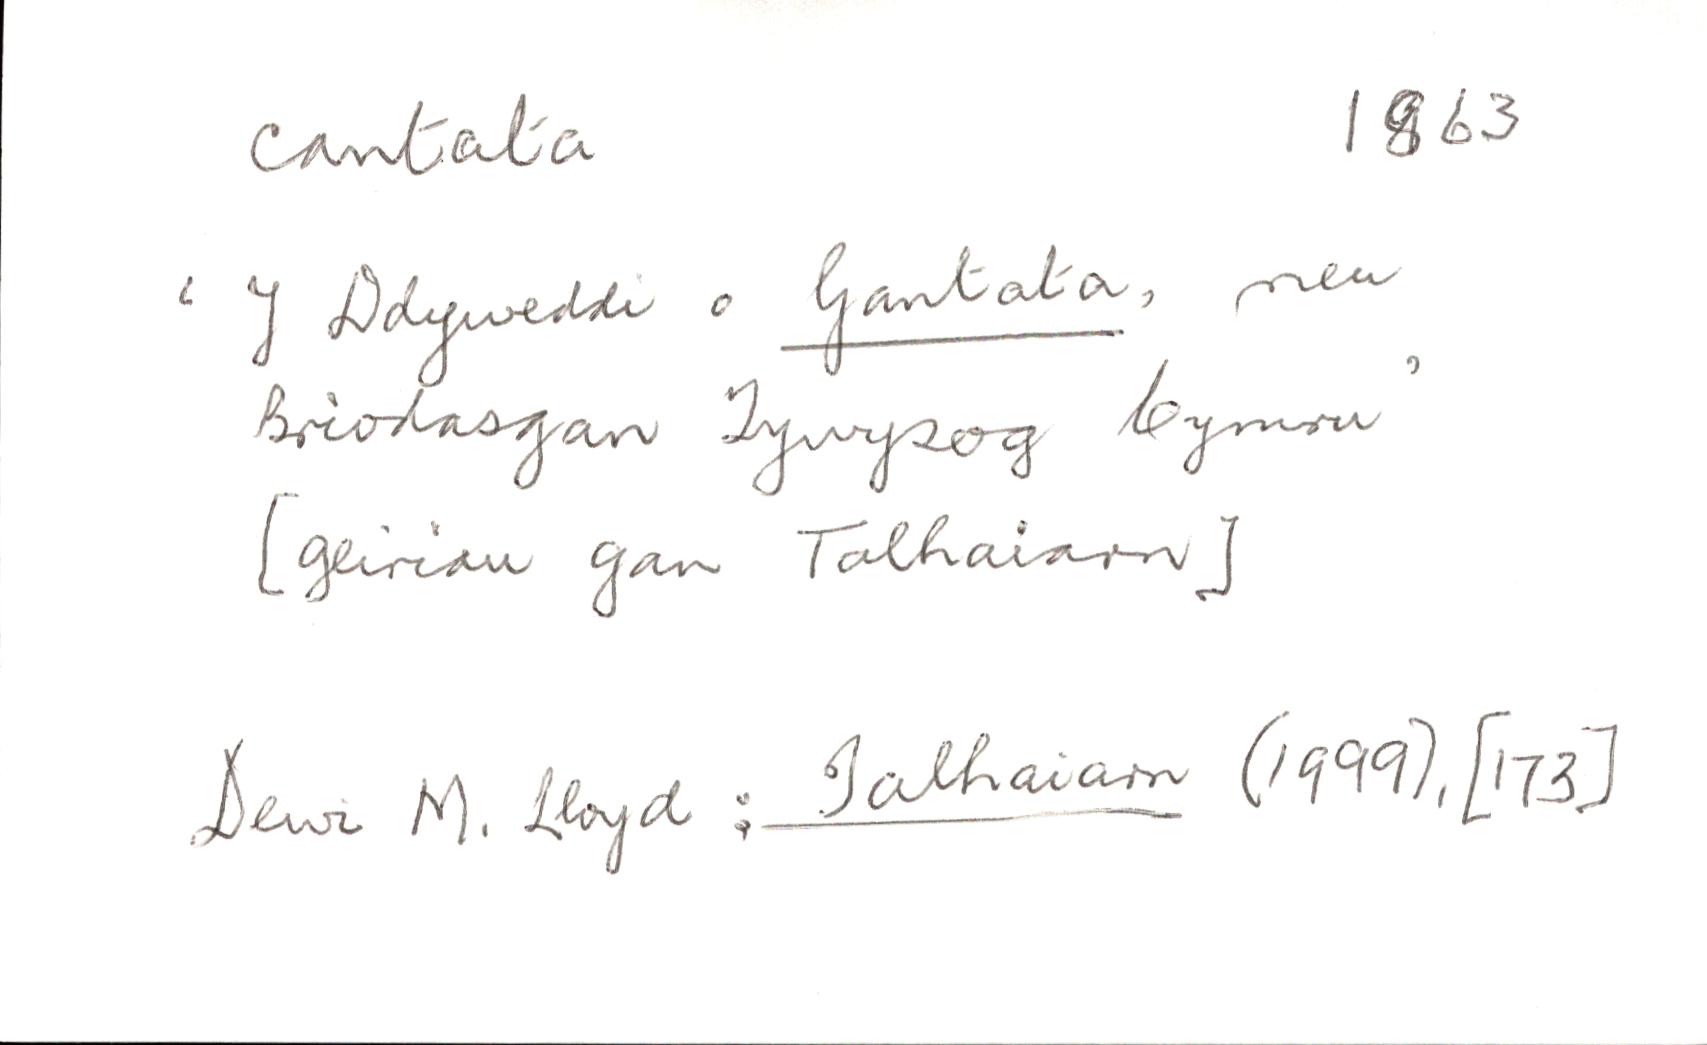 cantata 1863
‘Y Ddyweddi o Gantata, neu
Briodasgan Tywysog Cymru’
[geiriau gan Talhaiarn]
Dewi M. Lloyd : Talhaiarn (1999), [173]